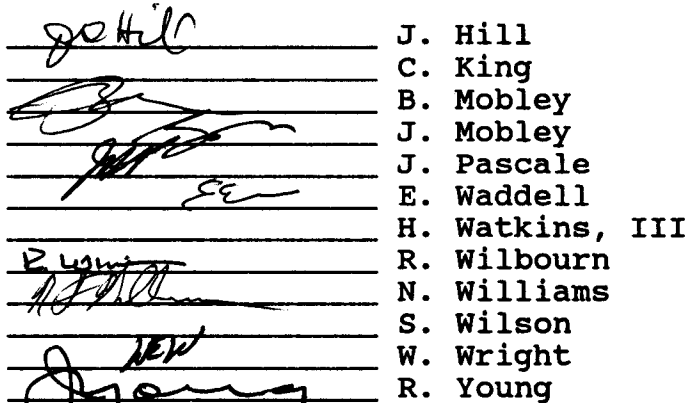 JD Hill J. Hill
C. King
B. Mobley
J. Mobley
J. Pascale
E. Waddell
H. Watkins, III
R. Wilbourn
N. Williams
S. Wilson
NEW W. Wright
R. Young